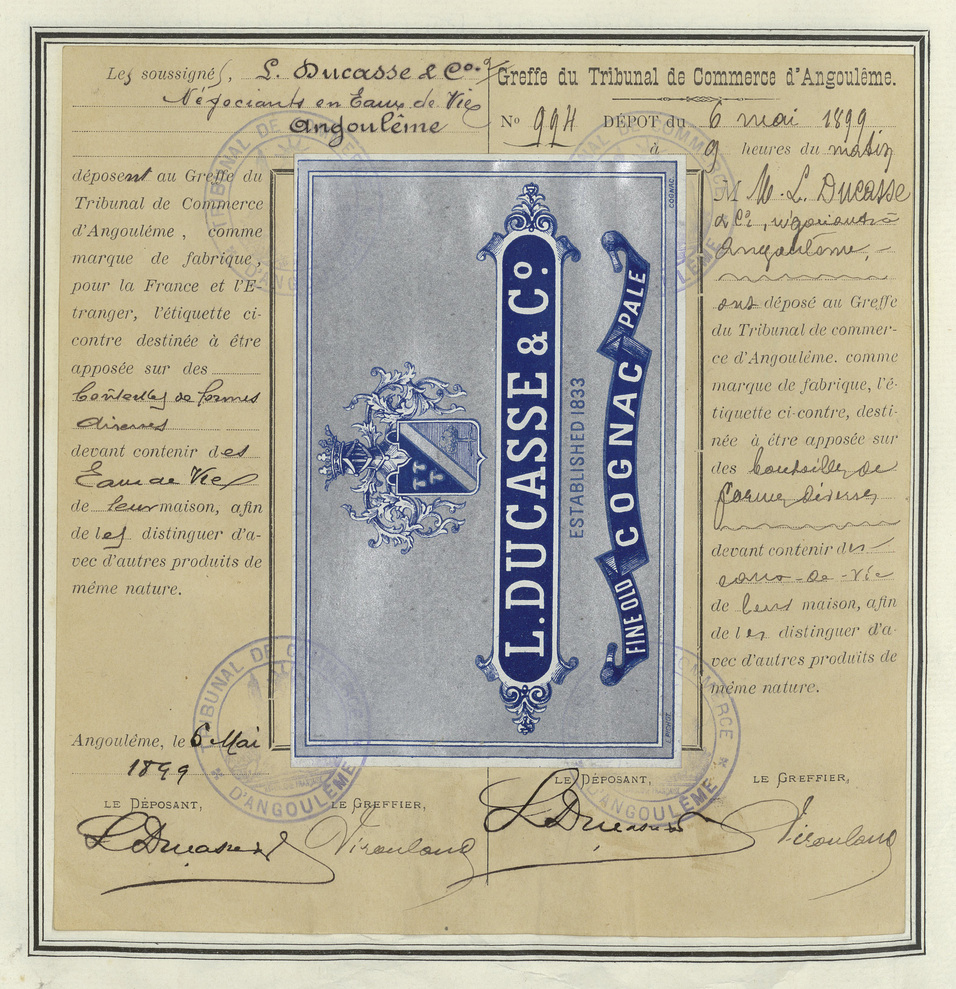 Les soussignés, L. Ducasse & Co.
Négociants en Eaux de Vie
Angoulême
déposent au Greffe du
Tribunal de Commerce
d'Angoulême, comme
marque de fabrique,
pour la France et l'E-
tranger, l'étiquette ci-
contre destinée à être
apposée sur des
bouteilles de formes
diverses
devant contenir des
Eaux de Vie
de leur maison, afin
de les distinguer d'a-
vec d'autres produits de
même nature.
Angoulême, le 6 Mai
1899
LE DÉPOSANT, LE GREFFIER,
L Ducasse
Greffe du Tribunal de Commerce d'Angoulême.
No 994 DÉPOT du 6 mai 1899
à 9 heures du matin
M M. L. Ducasse
& Cie, négociants à
Angoulême,
ont déposé au Greffe
du Tribunal de commer-
ce d'Angoulême. comme
marque de fabrique, l'é-
tiquette ci-contre, desti-
née à être apposée sur
des bouteilles de
formes diverses
devant contenir des
eaux-de-vie
de leur maison, afin
de les distinguer d'a-
vec d'autres produits de
même nature.
LE DÉPOSANT, LE GREFFIER,
L Ducasse
L. DUCASSE & Co.
ESTABLISHED 1833
FINE OLD COGNAC PALE
COGNAC
TRIBUNAL DE COMMERCE
D'ANGOULÊME
TRIBUNAL DE COMMERCE
D'ANGOULÊME